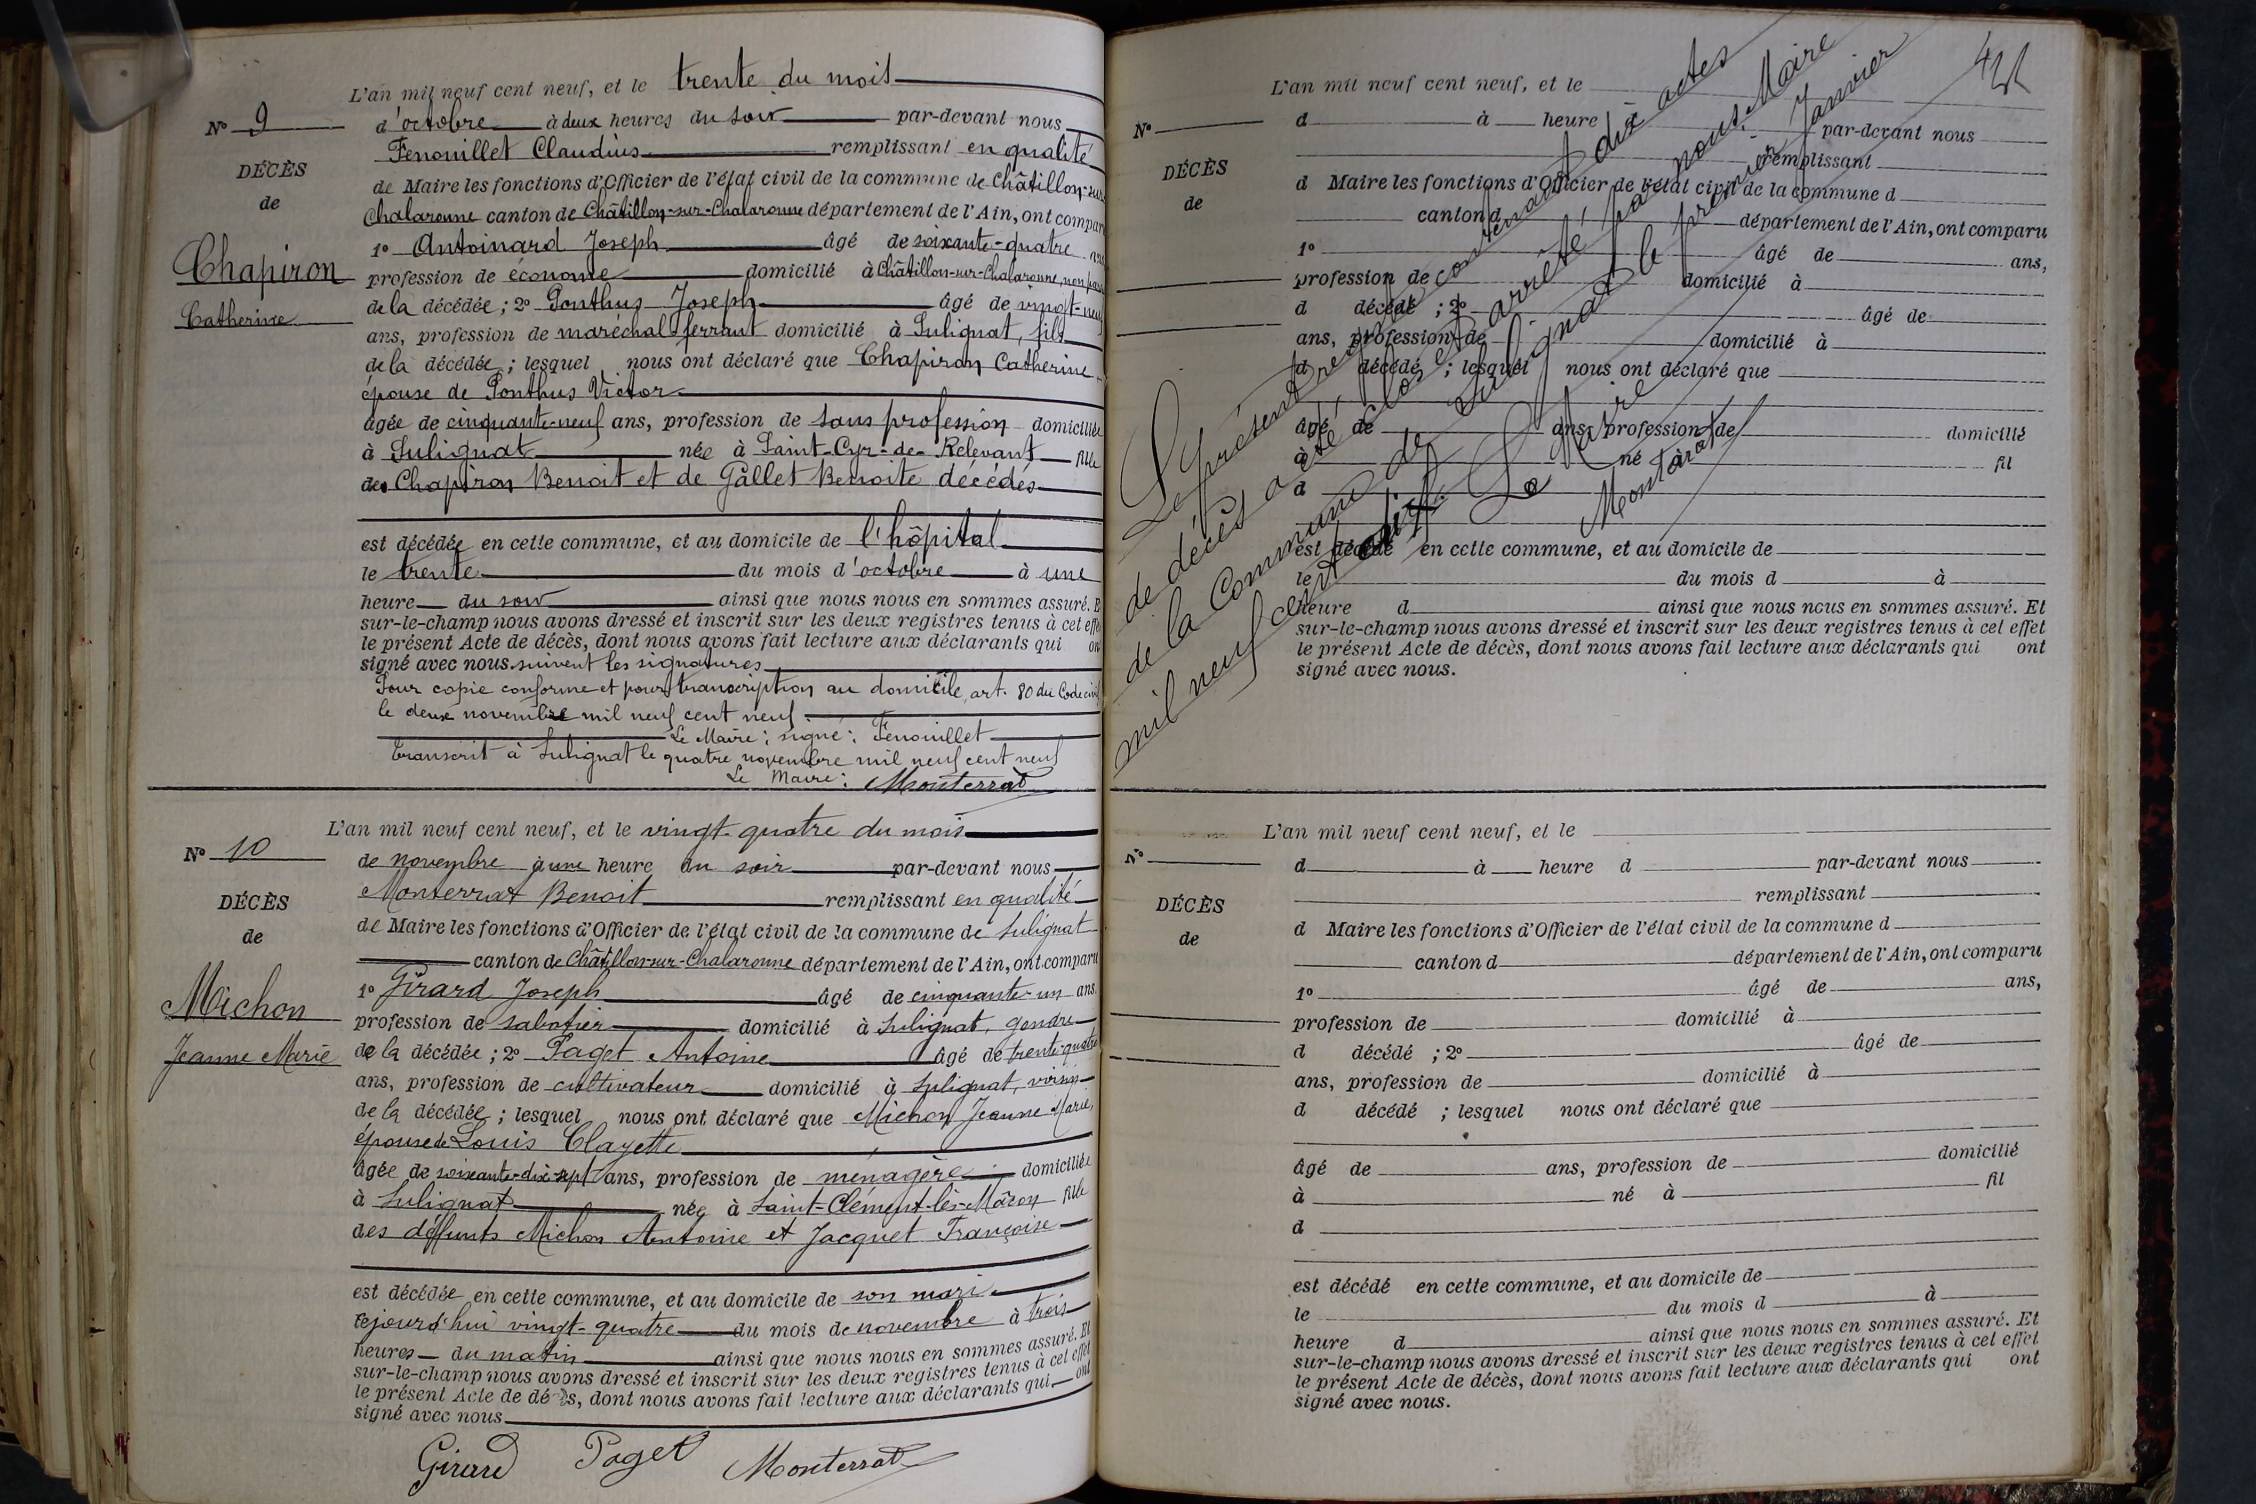 L'an mil neuf cent neuf, et le trente du mois
N° 9
d'octobre à deux heures du soir par-devant nous
Fenouillet Claudius remplissant en qualité
DÉCÈS
de Maire les fonctions d'Officier de l'état civil de la commune de Châtillon-sur-
de
Chalaronne canton de Châtillon-sur-Chalaronne département de l'Ain, ont compar
1° Antoinard Joseph âgé de soixante-quatre
Chapiron
profession de économe domicilié à Châtillon-sur-Chalaronne, non
Catherine
de la décédée ; 2° Ponthus Joseph âgé de vingt-neuf
ans, profession de maréchal ferrant domicilié à Sulignat, fils
de la décédée ; lesquel nous ont déclaré que Chapiron Catherine
épouse de Ponthus Victor
âgée de cinquante-neuf ans, profession de sans profession domiciliée
à Sulignat née à Saint-Cyr-de-Relevant fille
des Chapiron Benoit et de Gallet Benoite décédés
est décédée en cette commune, et au domicile de l'hôpital
le trente du mois d'octobre à une
heure du soir ainsi que nous nous en sommes assuré. E
sur-le-champ nous avons dressé et inscrit sur les deux registres tenus à cet effe
le présent Acte de décès, dont nous avons fait lecture aux déclarants qui on
signé avec nous. suivent les signatures
Pour copie conforme et pour transcription au domicile, art. 80 du Code civil
le deux novembre mil neuf cent neuf.
Le Maire ; signé : Fenouillet
Transcrit à Sulignat le quatre novembre mil neuf cent neuf
Le Maire : Monterrat
L'an mil neuf cent neuf, et le vingt-quatre du mois
N° 10
de novembre à une heure du soir par-devant nous
Monterrat Benoit remplissant en qualité
DÉCÈS
de Maire les fonctions d'Officier de l'état civil de la commune de Sulignat
de
canton de Châtillon-sur-Chalaronne département de l'Ain, ont comparu
Michon
1° Girard Joseph âgé de cinquante-un ans
profession de sabotier domicilié à Sulignat, gendre
Jeanne Marie
de la décédée ; 2° Paget Antoine âgé de trente-quatre
ans, profession de cultivateur domicilié à Sulignat, voisin
de la décédée ; lesquel nous ont déclaré que Michon Jeanne Marie,
épouse de Louis Clayette
âgée de soixante-dix-sept ans, profession de ménagère domiciliée
à Sulignat née à Saint-Clément-lès-Mâcon fille
des défunts Michon Antoine et Jacquet Françoise
est décédée en cette commune, et au domicile de son mari
cejourd'hui vingt-quatre du mois de novembre à trois
heures du matin ainsi que nous nous en sommes assuré. Et
sur-le-champ nous avons dressé et inscrit sur les deux registres tenus à cet effet
le présent Acte de décès, dont nous avons fait lecture aux déclarants qui ont
signé avec nous
Girard Paget Monterrat
L'an mil neuf cent neuf, et le
N°
d à heure par-devant nous
remplissant
DÉCÈS
d Maire les fonctions d'Officier de l'état civil de la commune d
de
canton d département de l'Ain, ont comparu
1° âgé de ans,
profession de domicilié à
d décédé ; 2° âgé de
ans, profession de domicilié à
d décédé ; lesquel nous ont déclaré que
âgé de ans, profession de domicilié
à né à fil
d
est décédé en cette commune, et au domicile de
le du mois d à
heure d ainsi que nous nous en sommes assuré. Et
sur-le-champ nous avons dressé et inscrit sur les deux registres tenus à cet effet
le présent Acte de décès, dont nous avons fait lecture aux déclarants qui ont
signé avec nous.
Le présent registre contenant dix actes
de décès a été clos et arrêté par nous, Maire
de la Commune de Sulignat le premier Janvier
mil neuf cent dix
Le Maire
Monterrat
L'an mil neuf cent neuf, et le
N°
d à heure d par-devant nous
remplissant
DÉCÈS
d Maire les fonctions d'Officier de l'état civil de la commune d
de
canton d département de l'Ain, ont comparu
1° âgé de ans,
profession de domicilié à
d décédé ; 2° âgé de
ans, profession de domicilié à
d décédé ; lesquel nous ont déclaré que
âgé de ans, profession de domicilié
à né à fil
d
est décédé en cette commune, et au domicile de
le du mois d à
heure d ainsi que nous nous en sommes assuré. Et
sur-le-champ nous avons dressé et inscrit sur les deux registres tenus à cet effet
le présent Acte de décès, dont nous avons fait lecture aux déclarants qui ont
signé avec nous.